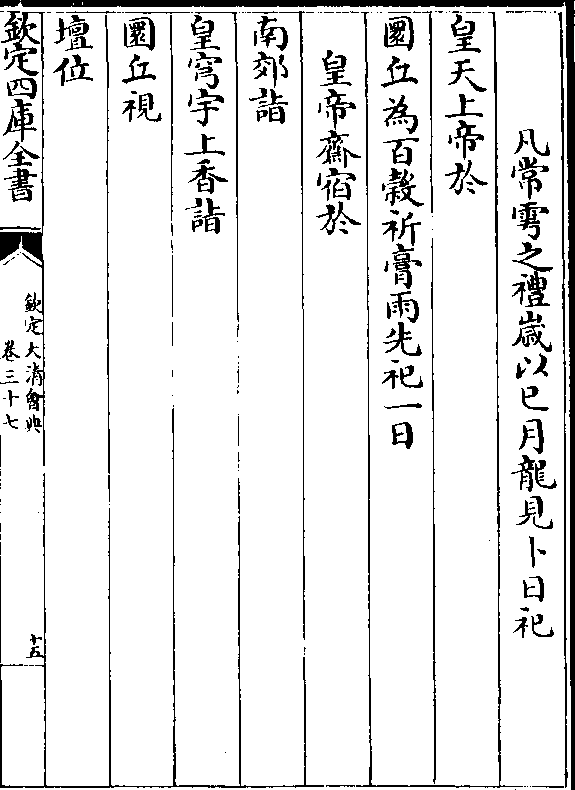 凡常雩之禮歲以巳月龍見卜日祀
皇天上帝於
圜丘為百穀祈膏雨先祀一日
皇帝齋宿於
南郊詣
皇穹宇上香詣
圜丘視
壇位
欽定四庫全書
欽定大清會典
卷三十七
十五